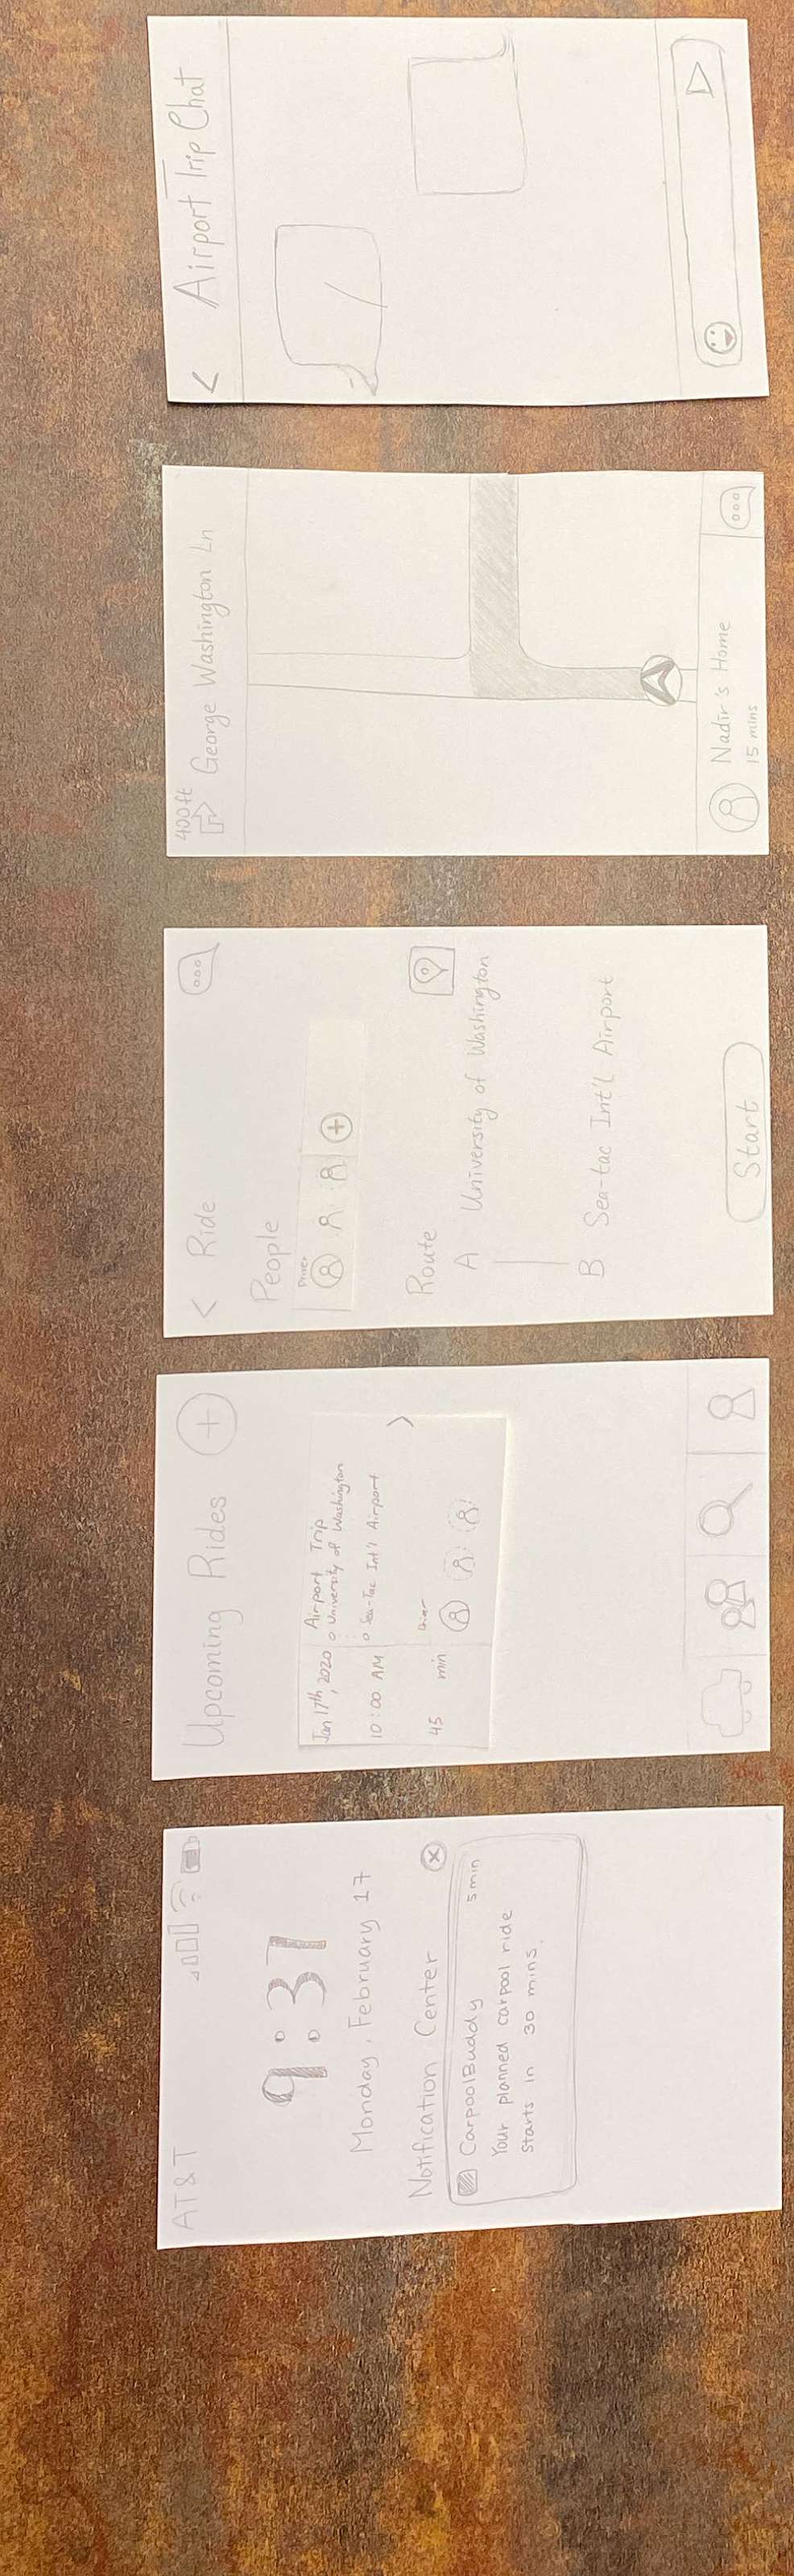 AT&T
9:37
Monday, February 17
Notification Center
CarpoolBuddy 5 min
Your planned carpool ride
starts in 30 mins.
Upcoming Rides
Jan 17th, 2020 Airport Trip
University of Washington
10:00 AM Sea-Tac Int'l Airport
Driver
45 min
< Ride
People
Driver
Route
A University of Washington
B Sea-tac Int'l Airport
Start
400ft
George Washington Ln
Nadir's Home
15 mins
< Airport Trip Chat